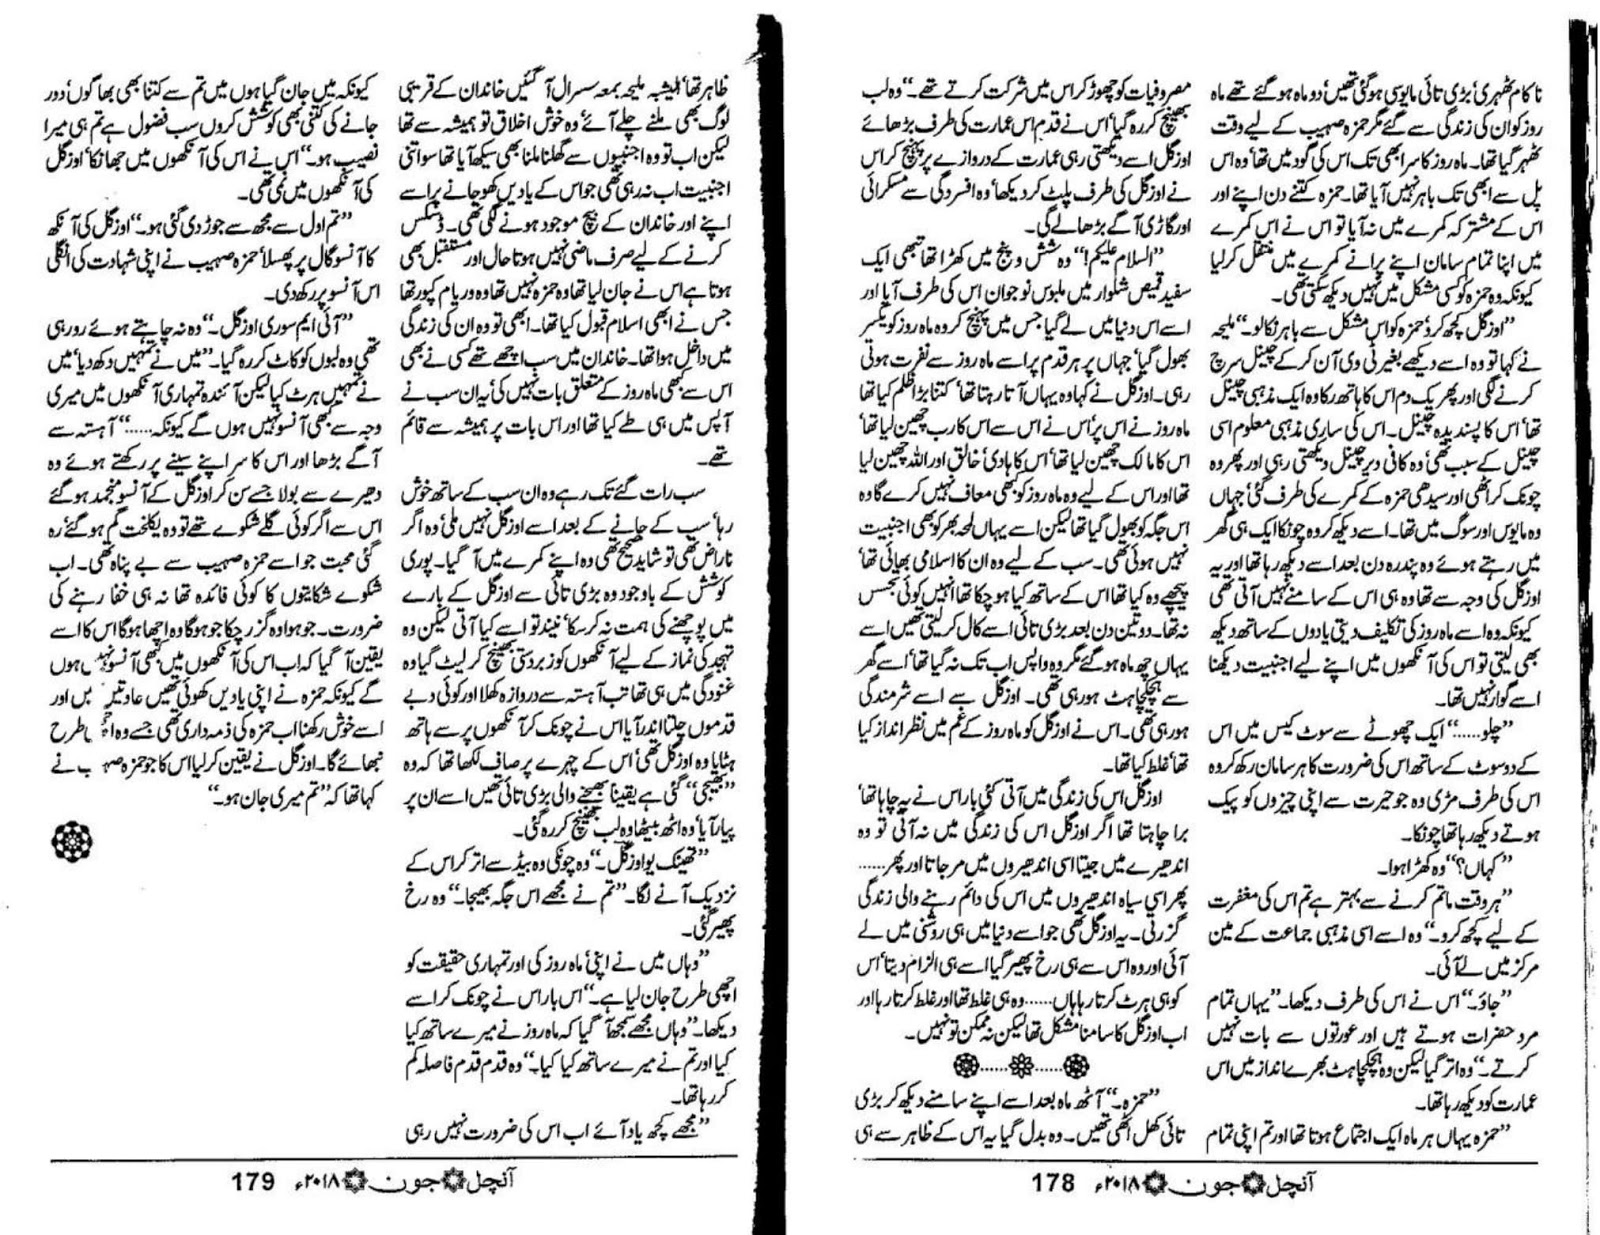 ناکام ٹھہری‘ بڑی تائی مایوسی ہوگئی تھیں‘ دو ماہ ہو گئے تھے ماہ
روز کو ان کی زندگی سے گئے مگر حمزہ صہیب کے لیے وقت
ٹھہر گیا تھا۔ ماہ روز کا سر ابھی تک اس کی گود میں تھا‘ وہ اس
پل سے ابھی تک باہر نہیں آیا تھا۔ حمزہ کتنے دن اپنے اور
اس کے مشترکہ کمرے میں نہ آیا تو اس نے اس کمرے
میں اپنا تمام سامان اپنے پرانے کمرے میں منتقل کر لیا
کیونکہ وہ حمزہ کو کسی مشکل میں نہیں دیکھ سکتی تھی۔
”اوزگل کچھ کرو‘ حمزہ کو اس مشکل سے باہر نکالو۔“ ملیحہ
نے کہا تو وہ اسے دیکھے بغیر ٹی وی آن کر کے چینل سرچ
کرنے لگی اور پھر یک دم اس کا ہاتھ رکا وہ ایک مذہبی چینل
تھا‘ اس کا پسندیدہ چینل۔ اس کی ساری مذہبی معلوم اسی
چینل کے سبب تھی‘ وہ کافی دیر چینل دیکھتی رہی اور پھر وہ
چونک کر اٹھی اور سیدھی حمزہ کے کمرے کی طرف گئی‘ جہاں
وہ مایوس اور سوگ میں تھا۔ اسے دیکھ کر وہ چونکا ایک ہی گھر
میں رہتے ہوئے وہ پندرہ دن بعد اسے دیکھ رہا تھا اور یہ
اوزگل کی وجہ سے تھا وہ ہی اس کے سامنے نہیں آتی تھی
کیونکہ وہ اسے ماہ روز کی تکلیف دیتی یادوں کے ساتھ دیکھ
بھی لیتی تو اس کی آنکھوں میں اپنے لیے اجنبیت دیکھنا
اسے گوارا نہیں تھا۔
”چلو......“ ایک چھوٹے سے سوٹ کیس میں اس
کے دو سوٹ کے ساتھ اس کی ضرورت کا ہر سامان رکھ کر وہ
اس کی طرف مڑی وہ جو حیرت سے اپنی چیزوں کو پیک
ہوتے دیکھ رہا تھا چونکا۔
”کہاں؟“ وہ کھڑا ہوا۔
”ہر وقت ماتم کرنے سے بہتر ہے تم اس کی مغفرت
کے لیے کچھ کرو۔“ وہ اسے اسی مذہبی جماعت کے مین
مرکز میں لے آئی۔
”جاؤ۔“ اس نے اس کی طرف دیکھا۔ ”یہاں تمام
مرد حضرات ہوتے ہیں اور عورتوں سے بات نہیں
کرتے۔“ وہ اتر گیا لیکن وہ ہچکچاہٹ بھرے انداز میں اس
عمارت کو دیکھ رہا تھا۔
”حمزہ یہاں ہر ماہ ایک اجتماع ہوتا تھا اور تم اپنی تمام
مصروفیات کو چھوڑ کر اس میں شرکت کرتے تھے۔“ وہ لب
بھینچ کر رہ گیا‘ اس نے قدم اس عمارت کی طرف بڑھائے
اوزگل اسے دیکھتی رہی عمارت کے دروازے پر پہنچ کر اس
نے اوزگل کی طرف پلٹ کر دیکھا‘ وہ افسردگی سے مسکرائی
اور گاڑی آگے بڑھا لے گی۔
”السلام علیکم!“ وہ شش و پنج میں کھڑا تھا تبھی ایک
سفید قمیص شلوار میں ملبوس نوجوان اس کی طرف آیا اور
اسے اس دنیا میں لے گیا جس میں پہنچ کر وہ ماہ روز کو یکسر
بھول گیا‘ جہاں پر ہر قدم پر اسے ماہ روز سے نفرت ہوتی
رہی۔ اوزگل نے کہا وہ یہاں آتا رہتا تھا‘ کتنا بڑا ظلم کیا تھا
ماہ روز نے اس پر‘ اس نے اس سے اس کا رب چھین لیا تھا‘
اس کا مالک چھین لیا تھا‘ اس کا ہادی‘ خالق اور اللہ چھین لیا
تھا اور اس کے لیے وہ ماہ روز کو بھی معاف نہیں کرے گا وہ
اس جگہ کو بھول گیا تھا لیکن اسے یہاں لمحہ بھر کو بھی اجنبیت
نہیں ہوئی تھی۔ سب کے لیے وہ ان کا اسلامی بھائی تھا‘
پیچھے وہ کیا تھا اس کے ساتھ کیا ہو چکا تھا انہیں کوئی تجسس
نہ تھا۔ دو تین دن بعد بڑی تائی اسے کال کر لیتی تھیں اسے
یہاں چھ ماہ ہو گئے مگر وہ واپس اب تک نہ گیا تھا‘ اسے گھر
سے ہچکچاہٹ ہو رہی تھی۔ اوزگل سے اسے شرمندگی
ہو رہی تھی۔ اس نے اوزگل کو ماہ روز کے غم میں نظر انداز کیا
تھا‘ غلط کیا تھا۔
اوزگل اس کی زندگی میں آتی کئی بار اس نے یہ چاہا تھا‘
برا چاہتا تھا اگر اوزگل اس کی زندگی میں نہ آتی تو وہ
اندھیرے میں جیتا اسی اندھیروں میں مر جاتا اور پھر......
پھر اسی سیاہ اندھیروں میں اس کی دائم رہنے والی زندگی
گزرتی۔ یہ اوزگل تھی جو اسے دنیا میں ہی روشنی میں لے
آئی اور وہ اس سے ہی رخ پھیر گیا اسے ہی الزام دیتا‘ اس
کو ہی ہرٹ کرتا رہا ہاں...... وہ ہی غلط تھا اور غلط کرتا رہا اور
اب اوزگل کا سامنا مشکل تھا لیکن نہ ممکن تو نہیں۔
”حمزہ۔“ آٹھ ماہ بعد اسے اپنے سامنے دیکھ کر بڑی
تائی کھل اٹھی تھیں۔ وہ بدل گیا یہ اس کے ظاہر سے ہی
آنچل جون ۲۰۱۸ء 178
ظاہر تھا‘ ملیحہ بمعہ سسرال آ گئیں خاندان کے قریبی
لوگ بھی ملنے چلے آئے‘ وہ خوش اخلاق تو ہمیشہ سے تھا
لیکن اب تو وہ اجنبیوں سے گھلنا ملنا بھی سیکھ آیا تھا سو اتنی
اجنبیت اب نہ رہی تھی جو اس کے یادیں کھو جانے پر اسے
اپنے اور خاندان کے بیچ موجود ہونے لگی تھی۔ ڈسکس
کرنے کے لیے صرف ماضی نہیں ہوتا حال اور مستقبل بھی
ہوتا ہے اس نے جان لیا تھا وہ حمزہ نہیں تھا وہ وریام کپور تھا
جس نے ابھی اسلام قبول کیا تھا۔ ابھی تو وہ ان کی زندگی
میں داخل ہوا تھا۔ خاندان میں سب اچھے تھے کسی نے بھی
اس سے کبھی ماہ روز کے متعلق بات نہیں کی‘ یہ ان سب نے
آپس میں ہی طے کیا تھا اور اس بات پر ہمیشہ سے قائم
تھے۔
سب رات گئے تک رہے وہ ان سب کے ساتھ خوش
رہا‘ سب کے جانے کے بعد اسے اوزگل نہیں ملی‘ وہ اگر
ناراض تھی تو شاید صحیح تھی وہ اپنے کمرے میں آ گیا۔ پوری
کوشش کے باوجود وہ بڑی تائی سے اوزگل کے بارے
میں پوچھنے کی ہمت نہ کر سکا‘ نیند تو اسے کیا آتی لیکن وہ
تہجد کی نماز کے لیے آنکھوں کو زبردستی بھینچ کر لیٹ گیا وہ
غنودگی میں ہی تھا تب آہستہ سے دروازہ کھلا اور کوئی دبے
قدموں چلتا اندر آیا اس نے چونک کر آنکھوں پر سے ہاتھ
ہٹایا وہ اوزگل تھی‘ اس کے چہرے پر صاف لکھا تھا کہ وہ
”بھیجی“ گئی ہے یقیناً بھیجنے والی بڑی تائی تھیں اسے ان پر
پیار آیا‘ وہ اٹھ بیٹھا وہ لب بھینچ کر رہ گئی۔
”تھینک یو اوزگل۔“ وہ چونکی وہ بیڈ سے اتر کر اس کے
نزدیک آنے لگا۔ ”تم نے مجھے اس جگہ بھیجا۔“ وہ رخ
پھیر گئی۔
”وہاں میں نے اپنی‘ ماہ روز کی اور تمہاری حقیقت کو
اچھی طرح جان لیا ہے۔“ اس بار اس نے چونک کر اسے
دیکھا۔ ”وہاں مجھے سمجھ آ گیا کہ ماہ روز نے میرے ساتھ کیا
کیا اور تم نے میرے ساتھ کیا کیا۔“ وہ قدم قدم فاصلہ کم
کر رہا تھا۔
”مجھے کچھ یاد آئے اب اس کی ضرورت نہیں رہی
کیونکہ میں جان گیا ہوں میں تم سے کتنا بھی بھاگوں‘ دور
جانے کی کتنی بھی کوشش کروں سب فضول ہے تم ہی میرا
نصیب ہو۔“ اس نے اس کی آنکھوں میں جھانکا‘ اوزگل
کی آنکھوں میں نمی تھی۔
”تم اول سے مجھ سے جوڑ دی گئی ہو۔“ اوزگل کی آنکھ
کا آنسو گال پر پھسلا‘ حمزہ صہیب نے اپنی شہادت کی انگلی
اس آنسو پر رکھ دی۔
”آئی ایم سوری اوزگل۔“ وہ نہ چاہتے ہوئے رو رہی
تھی وہ لبوں کو کاٹ کر رہ گیا۔ ”میں نے تمہیں دکھ دیا‘ میں
نے تمہیں ہرٹ کیا لیکن آئندہ تمہاری آنکھوں میں میری
وجہ سے کبھی آنسو نہیں ہوں گے کیونکہ......“ آہستہ سے
آگے بڑھا اور اس کا سر اپنے سینے پر رکھتے ہوئے وہ
دھیرے سے بولا جسے سن کر اوزگل کے آنسو منجمد ہو گئے
اس سے اگر کوئی گلے شکوے تھے تو وہ یکلخت گم ہو گئے‘ رہ
گئی محبت جو اسے حمزہ صہیب سے بے پناہ تھی۔ اب
شکوے شکایتوں کا کوئی فائدہ تھا نہ ہی خفا رہنے کی
ضرورت۔ جو ہوا وہ گزر چکا جو ہوگا وہ اچھا ہوگا اس کا اسے
یقین آ گیا کہ اب اس کی آنکھوں میں کبھی آنسو نہیں ہوں
گے کیونکہ حمزہ نے اپنی یادیں کھوئی تھیں عادتیں بس اور
اسے خوش رکھنا اب حمزہ کی ذمہ داری تھی جسے وہ طرح
نبھائے گا۔ اوزگل نے یقین کر لیا اس کا جو حمزہ صہیب نے
کہا تھا کہ ”تم میری جان ہو۔“
آنچل جون ۲۰۱۸ء 179